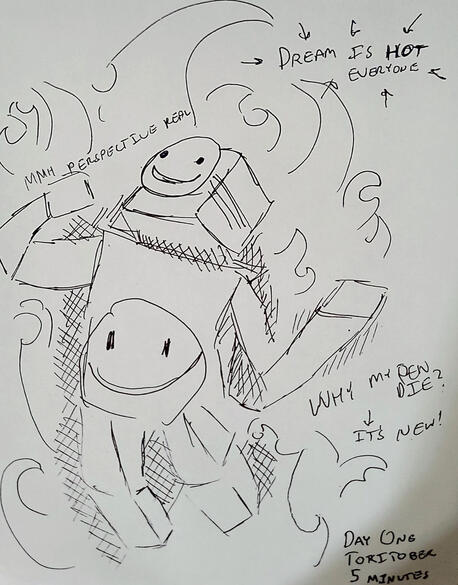 DREAM IS HOT
EVERYONE
MMH PERSPECTIVE REAL
WHY MY PEN
DIE?
ITS NEW!
DAY ONE
TORITOBER
5 MINUTES